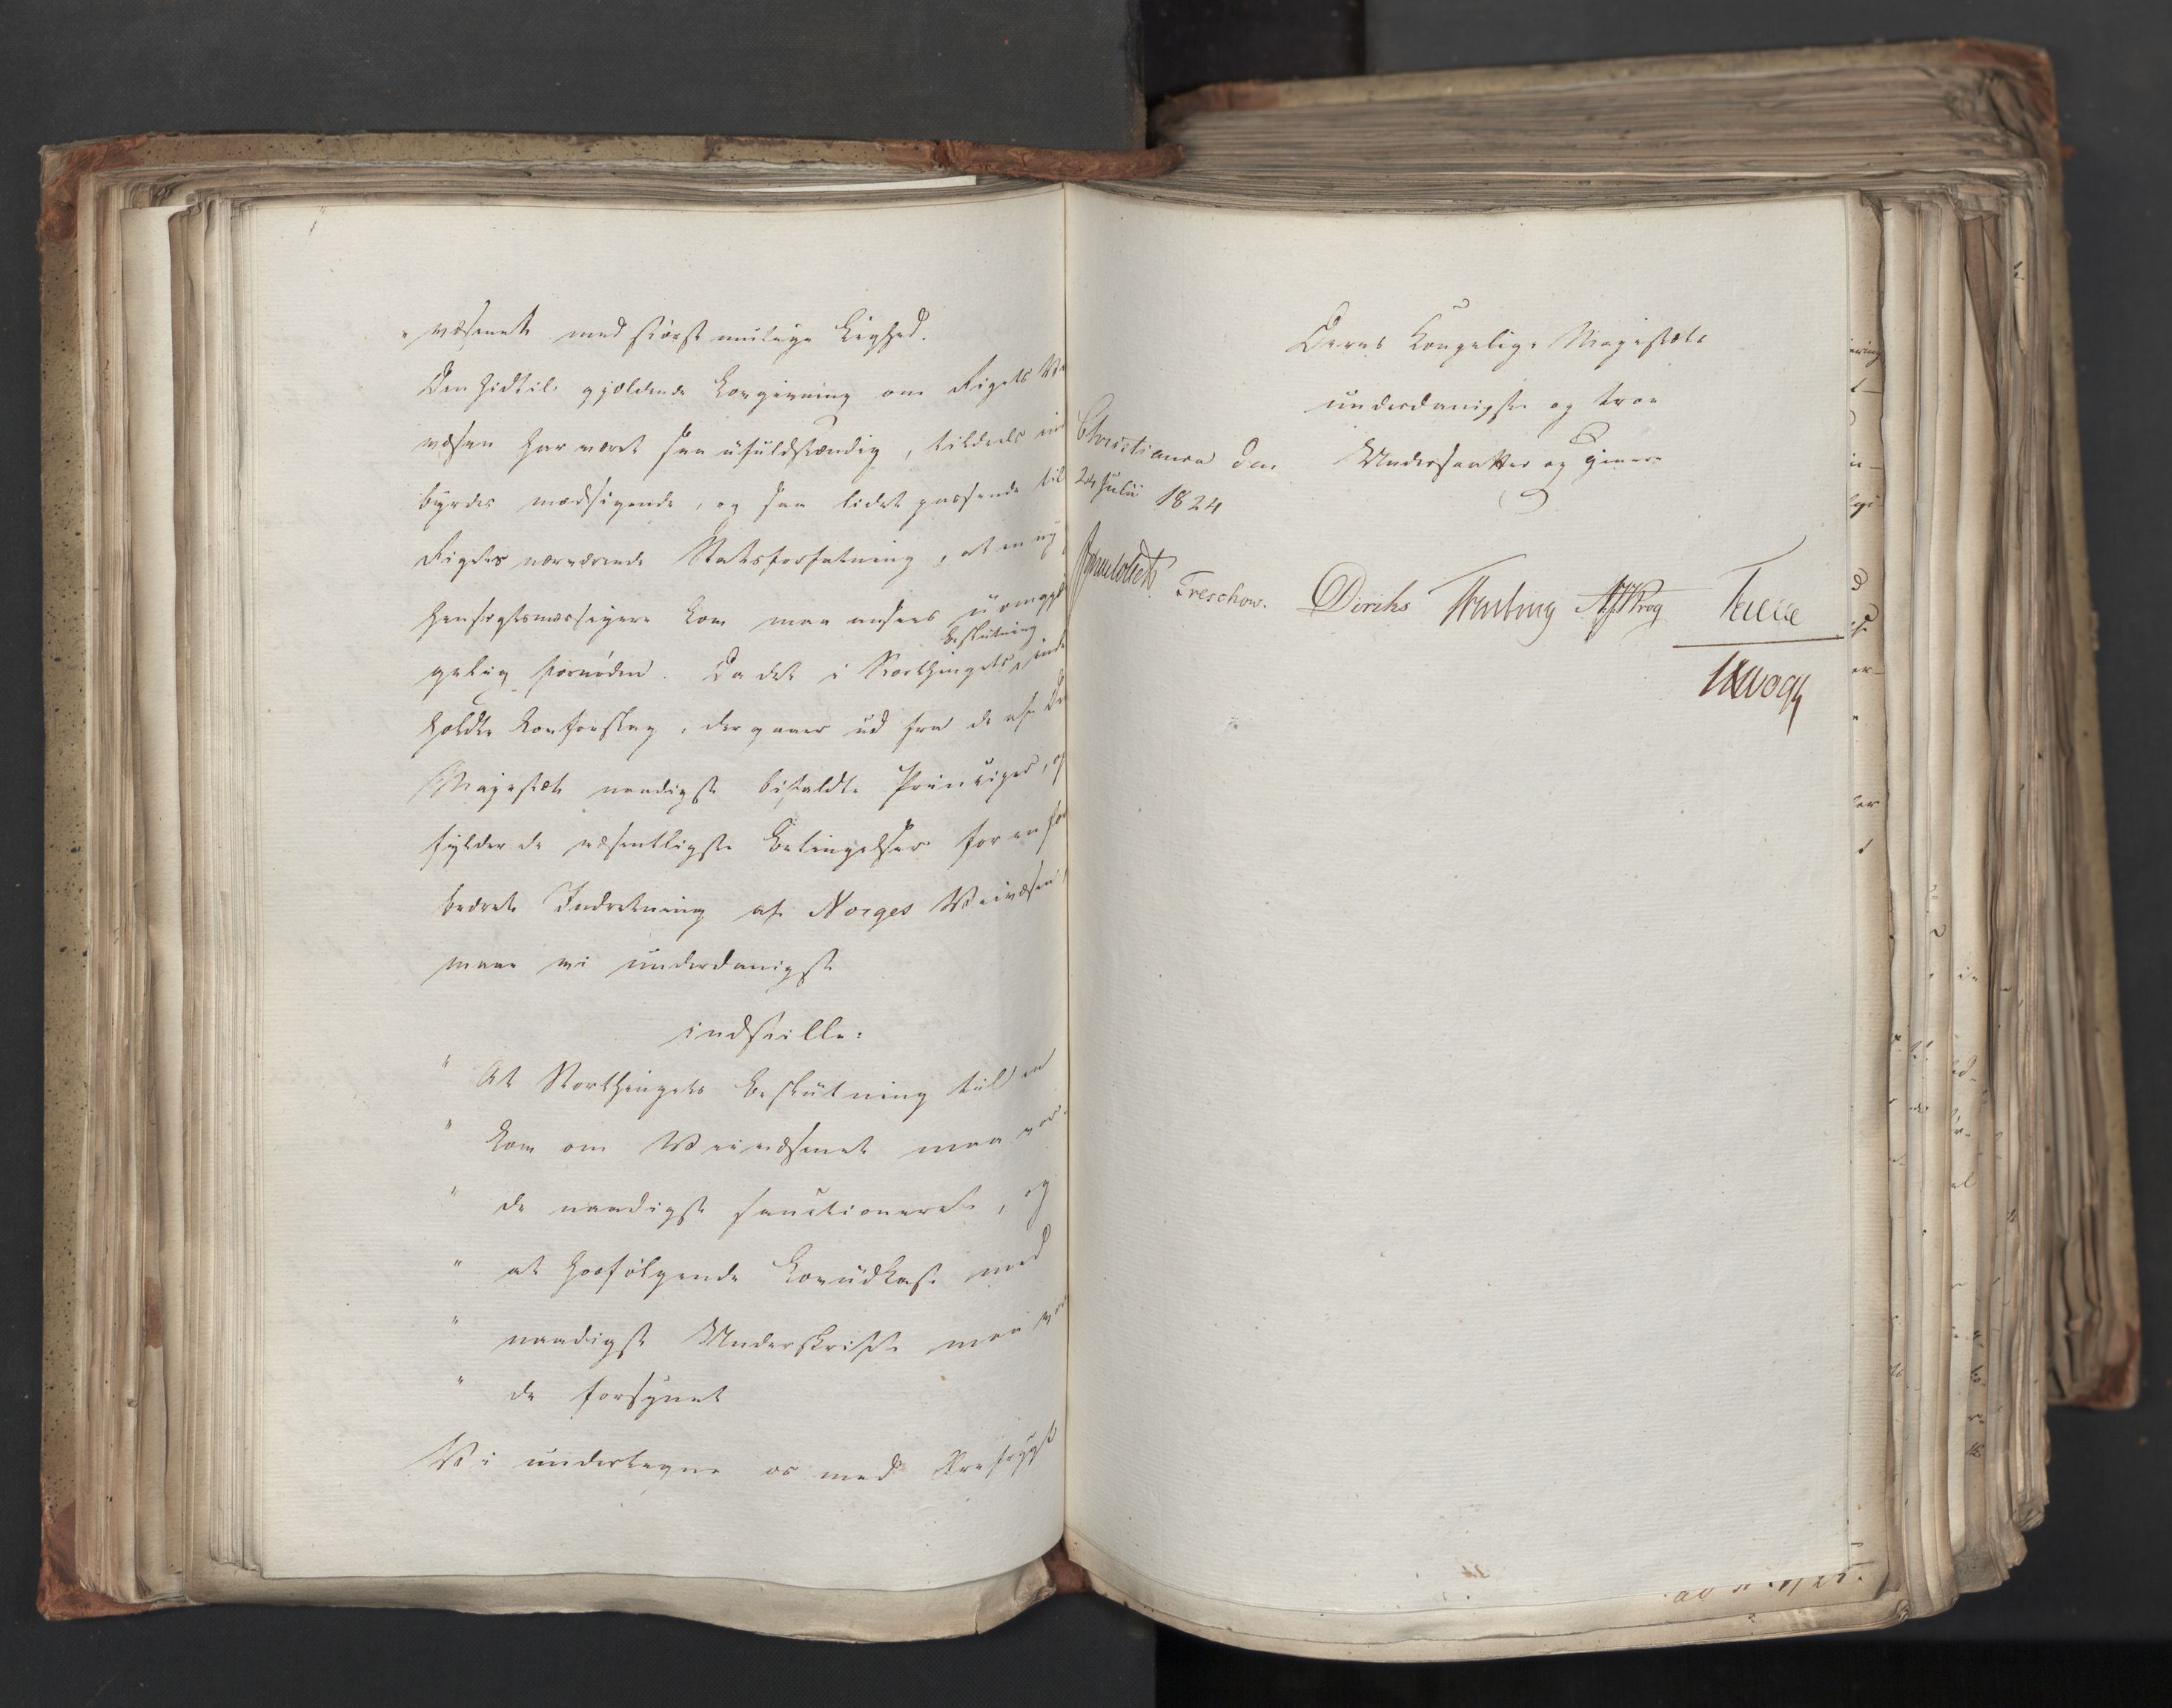 "væsenet med størst mulige Lighed.
Den hidtil gjældende Lovgivning om Rigets Vei
væsen har været saa ufuldstændig, tildeels ind
byrdes modsigende, og saa lidet passende til
Rigets nærværende Statsforfatning, at en ny
hensigtsmæssigere Lov maa ansees uomgjæn
gelig fornøden. Da det i Storthingets Beslutning inde
holdte Lovforslag, der gaaer ud fra de af Deres
Majestæt naadigst bifaldte Principer, op
fylder de væsentligste Betingelser for en for
bedret Indretning af Norges Veivæsen,
maae vi underdanigst
indstille:
" At Storthingets Beslutning til en
" Lov om Veivæsenet maa vor
" de naadigst sanctioneret, og
" at hosfølgende Lovudkast med
" naadigst Underskrift maa vor
" de forsynet
Vi undertegne os med Ærefrygt
Deres Kongelige Majestæts
underdanigste og troe
Undersaatter og Tjenere
Christiania den
24 Julii 1824
Treschow. Diriks Krog